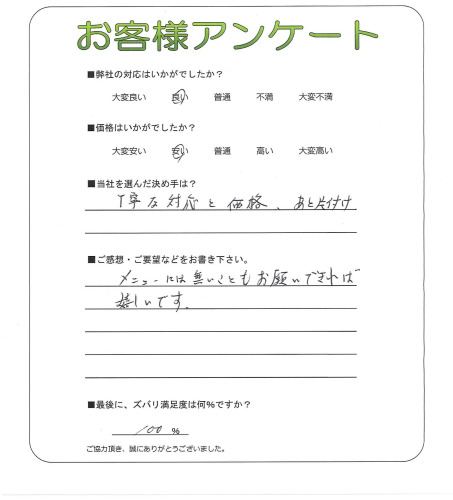 お客様アンケート
■弊社の対応はいかがでしたか？
大変良い 良い 普通 不満 大変不満
■価格はいかがでしたか？
大変安い 安い 普通 高い 大変高い
■当社を選んだ決め手は？
丁寧な対応と価格、あと片付け
■ご感想・ご要望などをお書き下さい。
メニューには無いこともお願いできれば
嬉しいです.
■最後に、ズバリ満足度は何%ですか？
100 %
ご協力頂き、誠にありがとうございました。